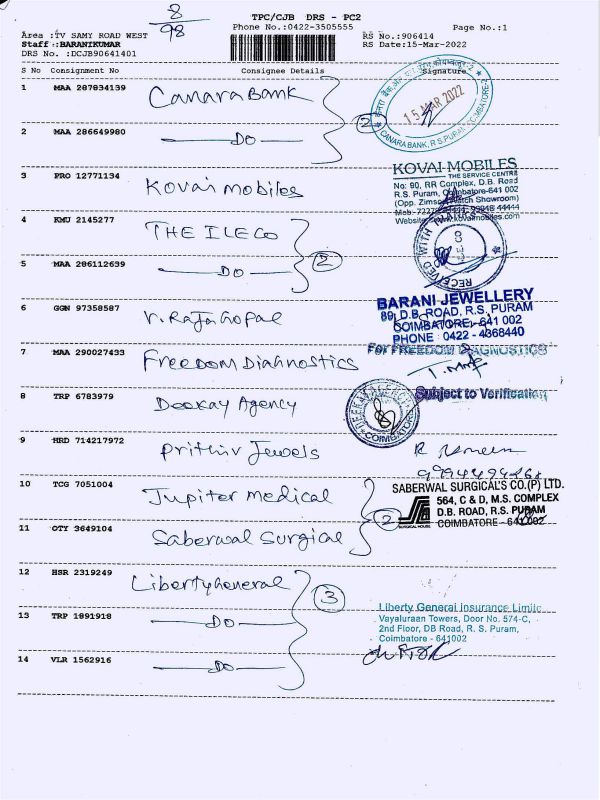 8
98
TPC/CJB DRS - PC2
Phone No.:0422-3505555
Page No.:1
Area :TV SAMY ROAD WEST
Staff :BARANIKUMAR
DRS No. :DCJB90641401
RS No.:906414
RS Date:15-Mar-2022
S No Consignment No Consignee Details Signature
1 MAA 287834139 Canara Bank
15 MAR 2022
CANARA BANK, R.S. PURAM, COIMBATORE-2
2 MAA 286649980 DO 2
3 PRO 12771134 Kovai mobiles
KOVAI MOBILES
THE SERVICE CENTRE
No: 90, RR Complex, D.B. Road
R.S. Puram, Coimbatore-641 002
(Opp. Zimson Watch Showroom)
4 KMU 2145277 THE ILECO
RECEIVED WITH THANKS
5 MAA 286112639 DO 2
6 GGN 97358587 V. Rajagopal
BARANI JEWELLERY
89, D.B. ROAD, R.S. PURAM
COIMBATORE - 641 002
PHONE : 0422 - 4368440
7 MAA 290027433 Freedom Diagnostics
For FREEDOM DIAGNOSTICS
8 TRP 6783979 Deekay Agency
DEEKAY AGENCY
COIMBATORE
Subject to Verification
9 HRD 714217972 Prithiv Jewels
10 TCG 7051004 Jupiter medical
SABERWAL SURGICAL'S CO.(P) LTD.
564, C & D, M.S. COMPLEX
D.B. ROAD, R.S. PURAM
COIMBATORE - 641 002
SURGICAL HOUSE
11 OTY 3649104 Saberwal Surgical 2
12 HSR 2319249 Liberty General
3
13 TRP 1891918 DO
Liberty General Insurance Limite
Vayaluraan Towers, Door No. 574-C,
2nd Floor, DB Road, R. S. Puram,
Coimbatore - 641002
14 VLR 1562916 DO